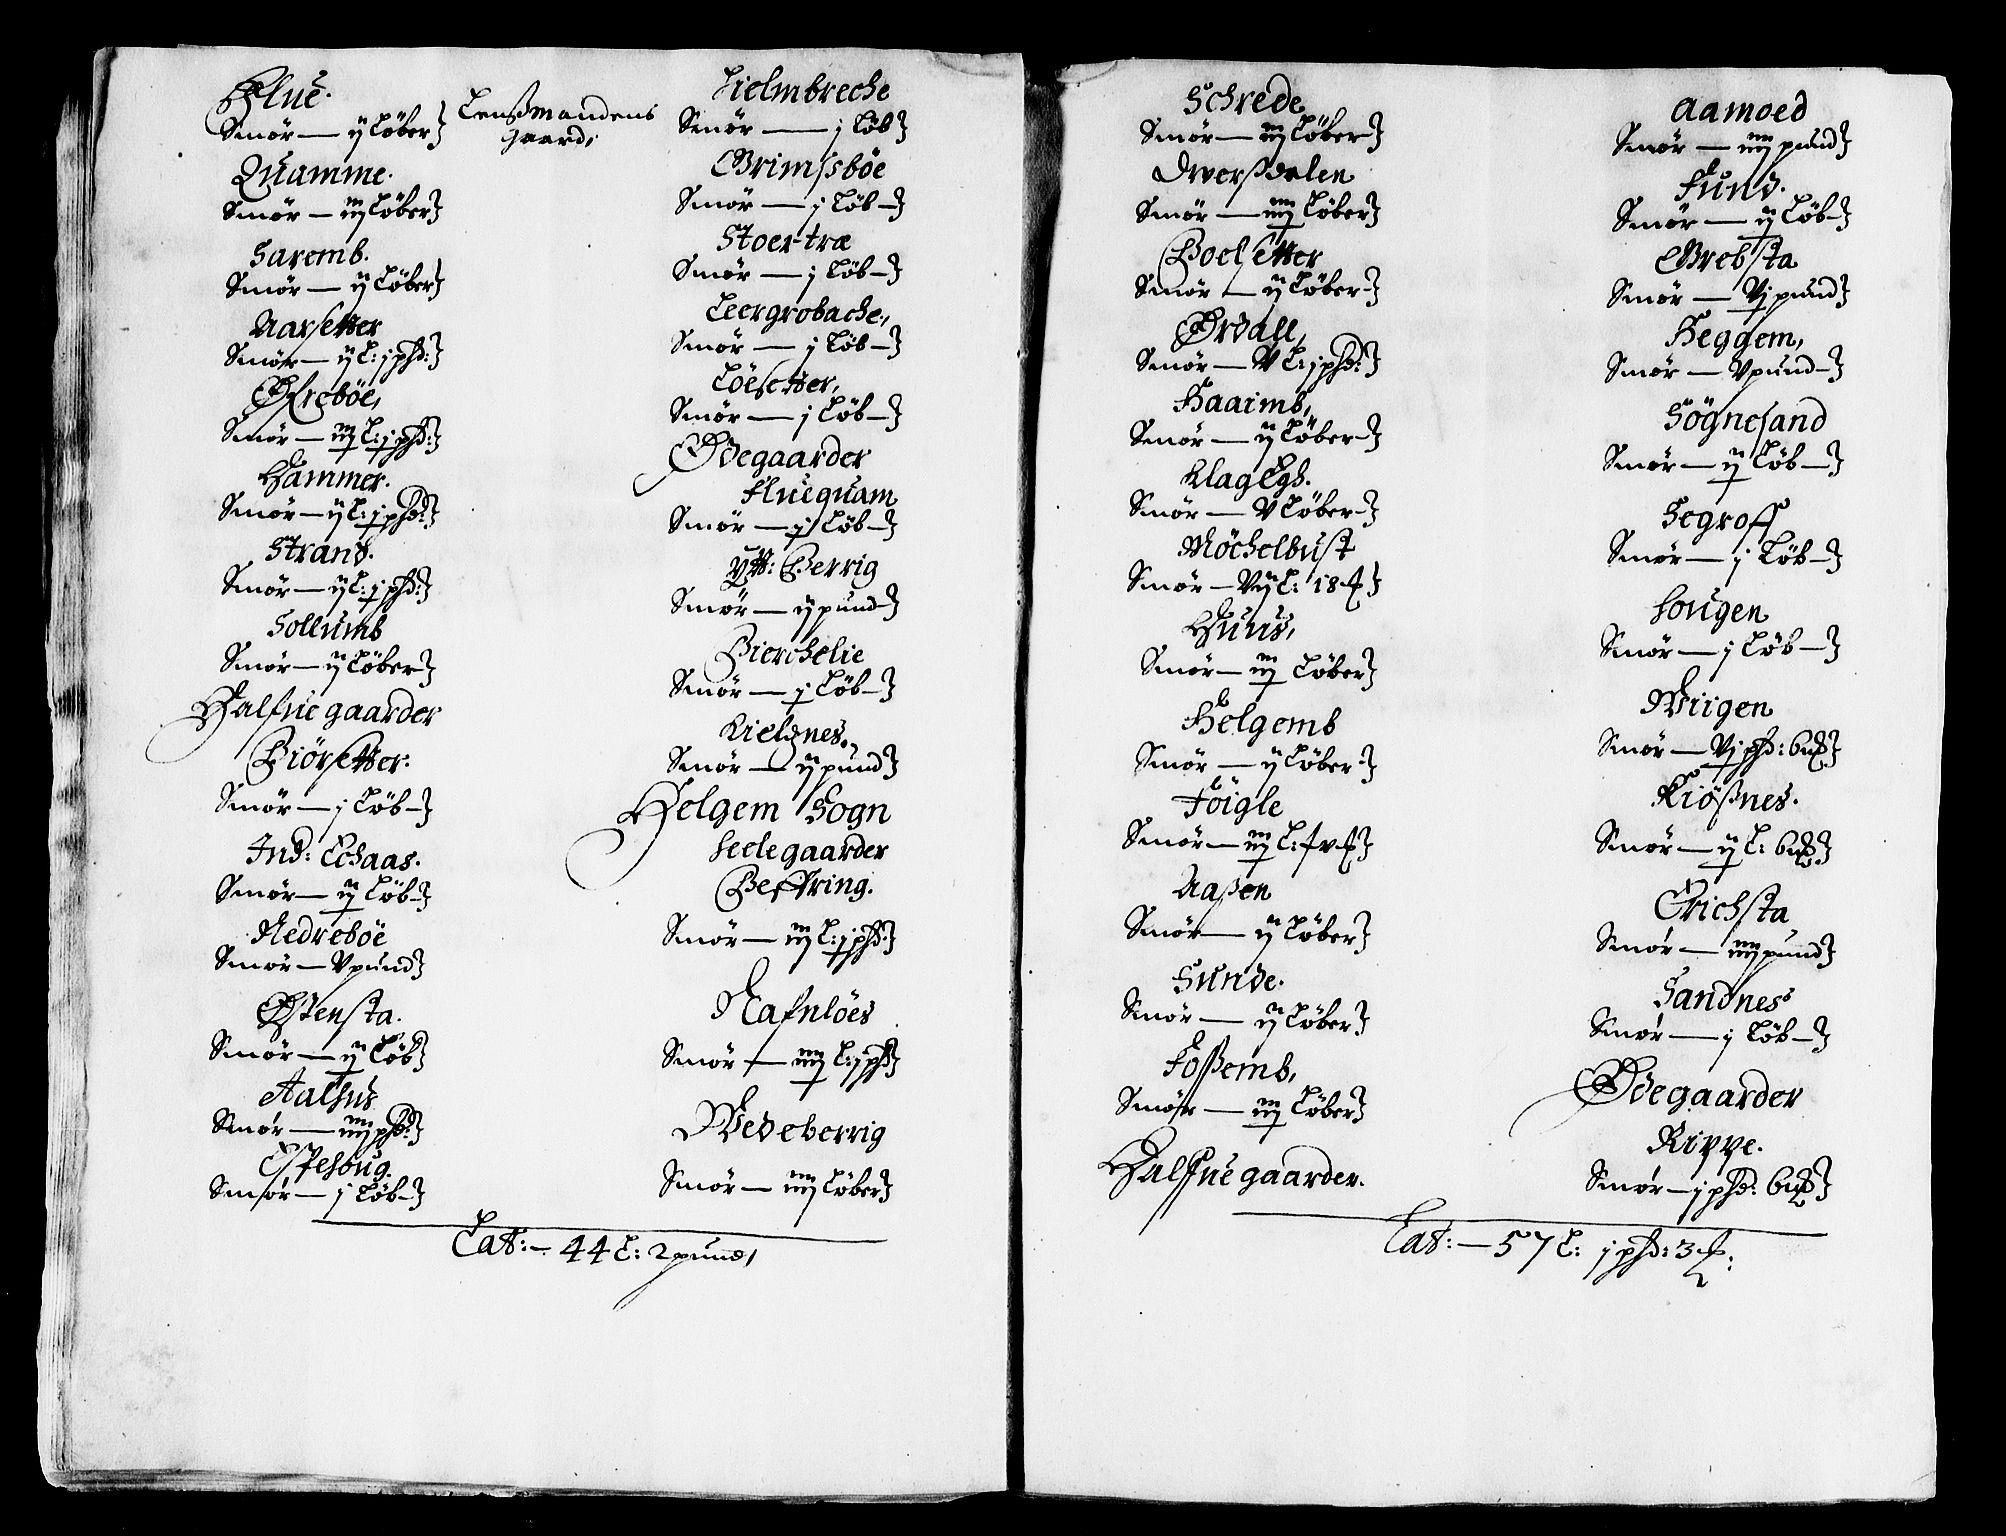 Flue.
Smör — ij Löber
Lenßmandens
gaard,
Quamme.
Smör — iij Löber
Saremb.
Smör — ij Löber
Aarsetter
Smör — ij L: j phd:
Øfrebøe,
Smör — iij L: j phd:
Hammer.
Smör — ij L: j phd:
Strand.
Smör — ij L: j phd:
Sollumb
Smör — ij Löber
Halfue gaarder
Biörsetter.
Smör — j Löb
Ind: Echaas.
Smör — ij Löb
Nedrebøe
Smör — V pund
Østensta.
Smör — ij Löb
Aalhus
Smör — iiij phd:
Smör — j Löb
Hielmbreche
Smör — j Löb
Grimssbøe
Smör — j Löb
Stoertræ
Smör — j Löb
Leergrobache,
Smör — j Löb
Løesetter,
Smör — j Löb
Ødegaarder
Fluequam
Smör — j Löb
Ytt: Berrig
Smör — ij pund
Bierchelie
Smör — j Löb
Kielsnes.
Smör — ij pund
Helgem Sogn
Heelegaarder
Beffring.
Smör — iij L: j phd:
Nafnløes
Smör — iiij L: j phd
Wedeberrig
Smör — iiij Löber
Lat: — 44 L: 2 pund,
Schrede
Smör — iij Löber
Dwerßdalen
Smör — iiij Löber
Boelsetter
Smör — ij Löber
Ørdall,
Smör — V L: j phd:
Haaimb,
Smör — ij Löber
Klageghs.
Smör — V Löber
Möchelbust
Smör — Vij L: 18 ₰
Huus,
Smör — iij Löber
Helgemb
Smör — ij Löber
Föigle
Aaßen
Smör — ij Löber
Sunde.
Smör — ij Löber
Foßemb,
Smör — iij Löber
Halffue gaarder.
Aamoed
Smör — iiij pund
Fund.
Smör — ij Löb
Grebsta
Smör — Vj pund
Heggem,
Smör — V pund
Sögnesand
Smör — ij Löb
Segroff
Smör — j Löb
Hougen
Smör — j Löb
Wiigen
Smör — Vj phd: 6 ₰
Kiößnes.
Smör — ij L: 6 ₰
Erichsta
Smör — iiij pund
Sandnes
Smör — j Löb
Ødegaarder
Rippe.
Smör — j phd: 6 ₰
Lat: — 57 L: j phd: 3 ₰: